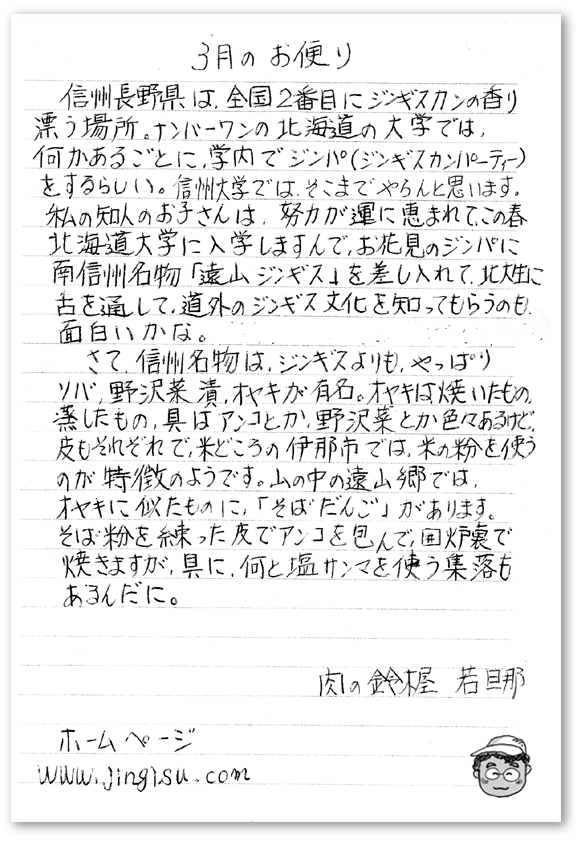 3月のお便り
信州長野県は、全国2番目にジンギスカンの香り
漂う場所。ナンバーワンの北海道の大学では、
何かあるごとに、学内でジンパ(ジンギスカンパーティー)
をするらしい。信州大学では、そこまでやらんと思います。
私の知人のお子さんは、努力が運に恵まれて、この春
北海道大学に入学しますんで、お花見のジンパに
南信州名物「遠山ジンギス」を差し入れて、北大生に
舌を通して、道外のジンギス文化を知ってもらうのも、
面白いかな。
さて、信州名物は、ジンギスよりも、やっぱり
ソバ、野沢菜漬、オヤキが有名。オヤキは焼いたもの、
蒸したもの、具はアンコとか、野沢菜とか色々あるけど、
皮もそれぞれで、米どころの伊那市では、米の粉を使う
のが特徴のようです。山の中の遠山郷では、
オヤキに似たものに、「そばだんご」があります。
そば粉を練った皮でアンコを包んで、囲炉裏で
焼きますが、具に、何と塩サンマを使う集落も
あるんだに。
肉の鈴木屋 若旦那
ホームページ
www.jingisu.com